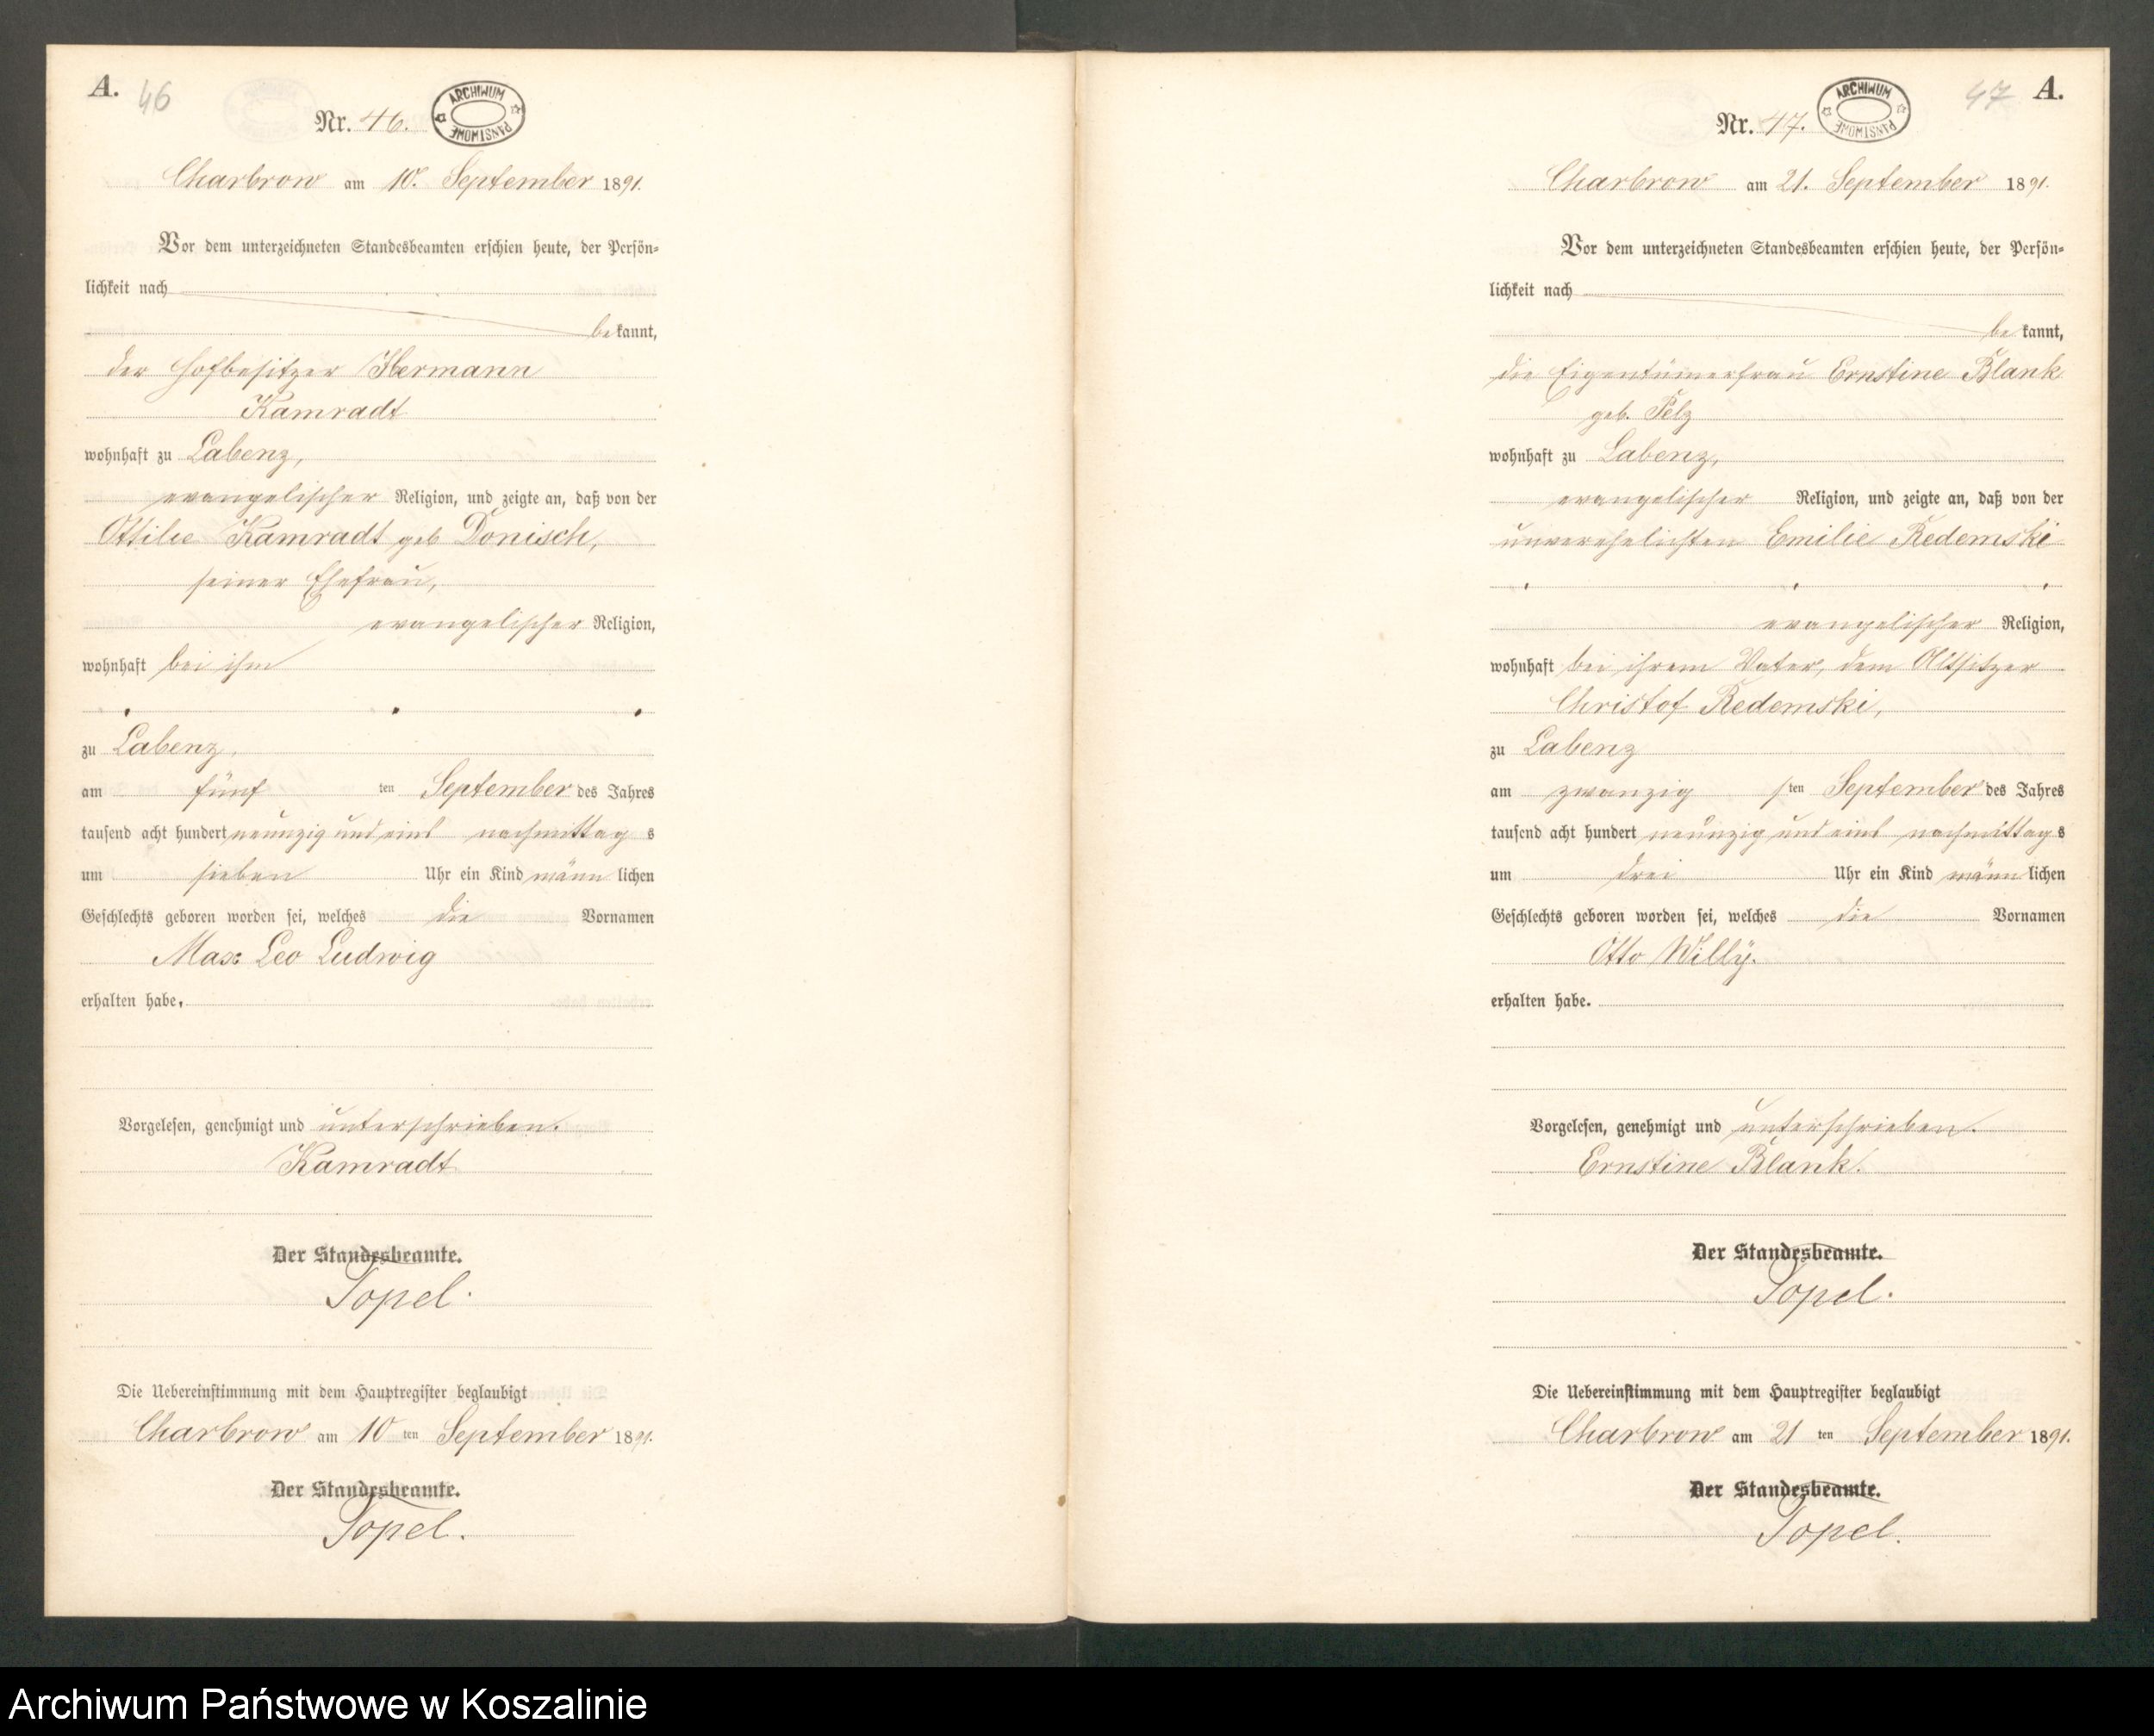 A. 46
ARCHIWUM PAŃSTWOWE
Nr. 46.
Charbrow am 10. September 1891.
Vor dem unterzeichneten Standesbeamten erschien heute, der Persön-
lichkeit nach
be kannt,
der Hofbesitzer Hermann
Kamradt
wohnhaft zu Labenz,
evangelischer Religion, und zeigte an, daß von der
Ottilie Kamradt geb. Donisch,
seiner Ehefrau,
evangelischer Religion,
wohnhaft bei ihm
zu Labenz,
am fünf ten September des Jahres
tausend acht hundert neunzig und eins nachmittag s
um sieben Uhr ein Kind männ lichen
Geschlechts geboren worden sei, welches die Vornamen
Max Leo Ludwig
erhalten habe.
Vorgelesen, genehmigt und unterschrieben.
Kamradt
Der Standesbeamte.
Topel.
Die Uebereinstimmung mit dem Hauptregister beglaubigt
Charbrow am 10 ten September 1891.
Der Standesbeamte.
Topel.
47 A.
ARCHIWUM PAŃSTWOWE
Nr. 47.
Charbrow am 21. September 1891.
Vor dem unterzeichneten Standesbeamten erschien heute, der Persön-
lichkeit nach
be kannt,
die Eigentümerfrau Ernstine Blank
geb. Pelz
wohnhaft zu Labenz,
evangelischer Religion, und zeigte an, daß von der
unverehelichten Emilie Redemski
evangelischer Religion,
wohnhaft bei ihrem Vater, dem Altsitzer
Christof Redemski,
zu Labenz
am zwanzig sten September des Jahres
tausend acht hundert neunzig und eins nachmittag s
um drei Uhr ein Kind männ lichen
Geschlechts geboren worden sei, welches die Vornamen
Otto Willy.
erhalten habe.
Vorgelesen, genehmigt und unterschrieben.
Ernstine Blank.
Der Standesbeamte.
Topel.
Die Uebereinstimmung mit dem Hauptregister beglaubigt
Charbrow am 21 ten September 1891.
Der Standesbeamte.
Topel.
Archiwum Państwowe w Koszalinie